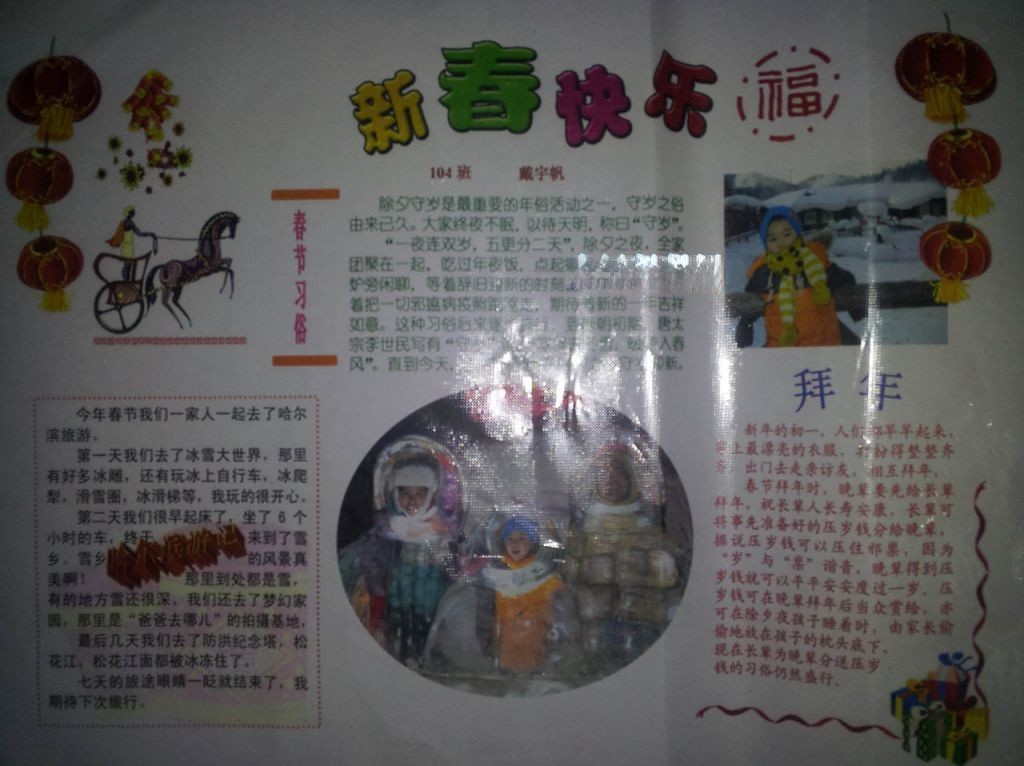 新春快乐
福
104 班 戴宇帆
春节习俗
除夕守岁是最重要的年俗活动之一，守岁之俗
由来已久。大家终夜不眠，以待天明，称曰“守岁”。
“一夜连双岁，五更分二天”，除夕之夜，全家
团聚在一起，吃过年夜饭，点起
炉旁闲聊，等着辞旧迎新的时刻
着把一切邪瘟病疫 期待着新的一年吉祥
如意。这种习俗后来 初期，唐太
宗李世民写有“守 入春
风”。直到今天， 守
今年春节我们一家人一起去了哈尔
滨旅游。
第一天我们去了冰雪大世界，那里
有好多冰雕，还有玩冰上自行车，冰爬
犁，滑雪圈，冰滑梯等，我玩的很开心。
第二天我们很早起床了，坐了 6 个
小时的车，终于 来到了雪
乡。雪乡 的风景真
美啊！ 那里到处都是雪，
有的地方雪还很深。我们还去了梦幻家
园，那里是“爸爸去哪儿”的拍摄基地，
最后几天我们去了防洪纪念塔，松
花江，松花江面都被冰冻住了。
七天的旅途眼睛一眨就结束了，我
期待下次旅行。
拜年
新年的初一，人们都早早起来，
上最漂亮的衣服，打扮得整整齐
齐，出门去走亲访友，相互拜年，
春节拜年时，晚辈要先给长辈
拜年，祝长辈人长寿安康，长辈可
将事先准备好的压岁钱分给晚辈，
据说压岁钱可以压住邪祟，因为
“岁”与“祟”谐音，晚辈得到压
岁钱就可以平平安安度过一岁。压
岁钱可在晚辈拜年后当众赏给，亦
可在除夕夜孩子睡着时，由家长偷
偷地放在孩子的枕头底下。
现在长辈为晚辈分送压岁
钱的习俗仍然盛行。